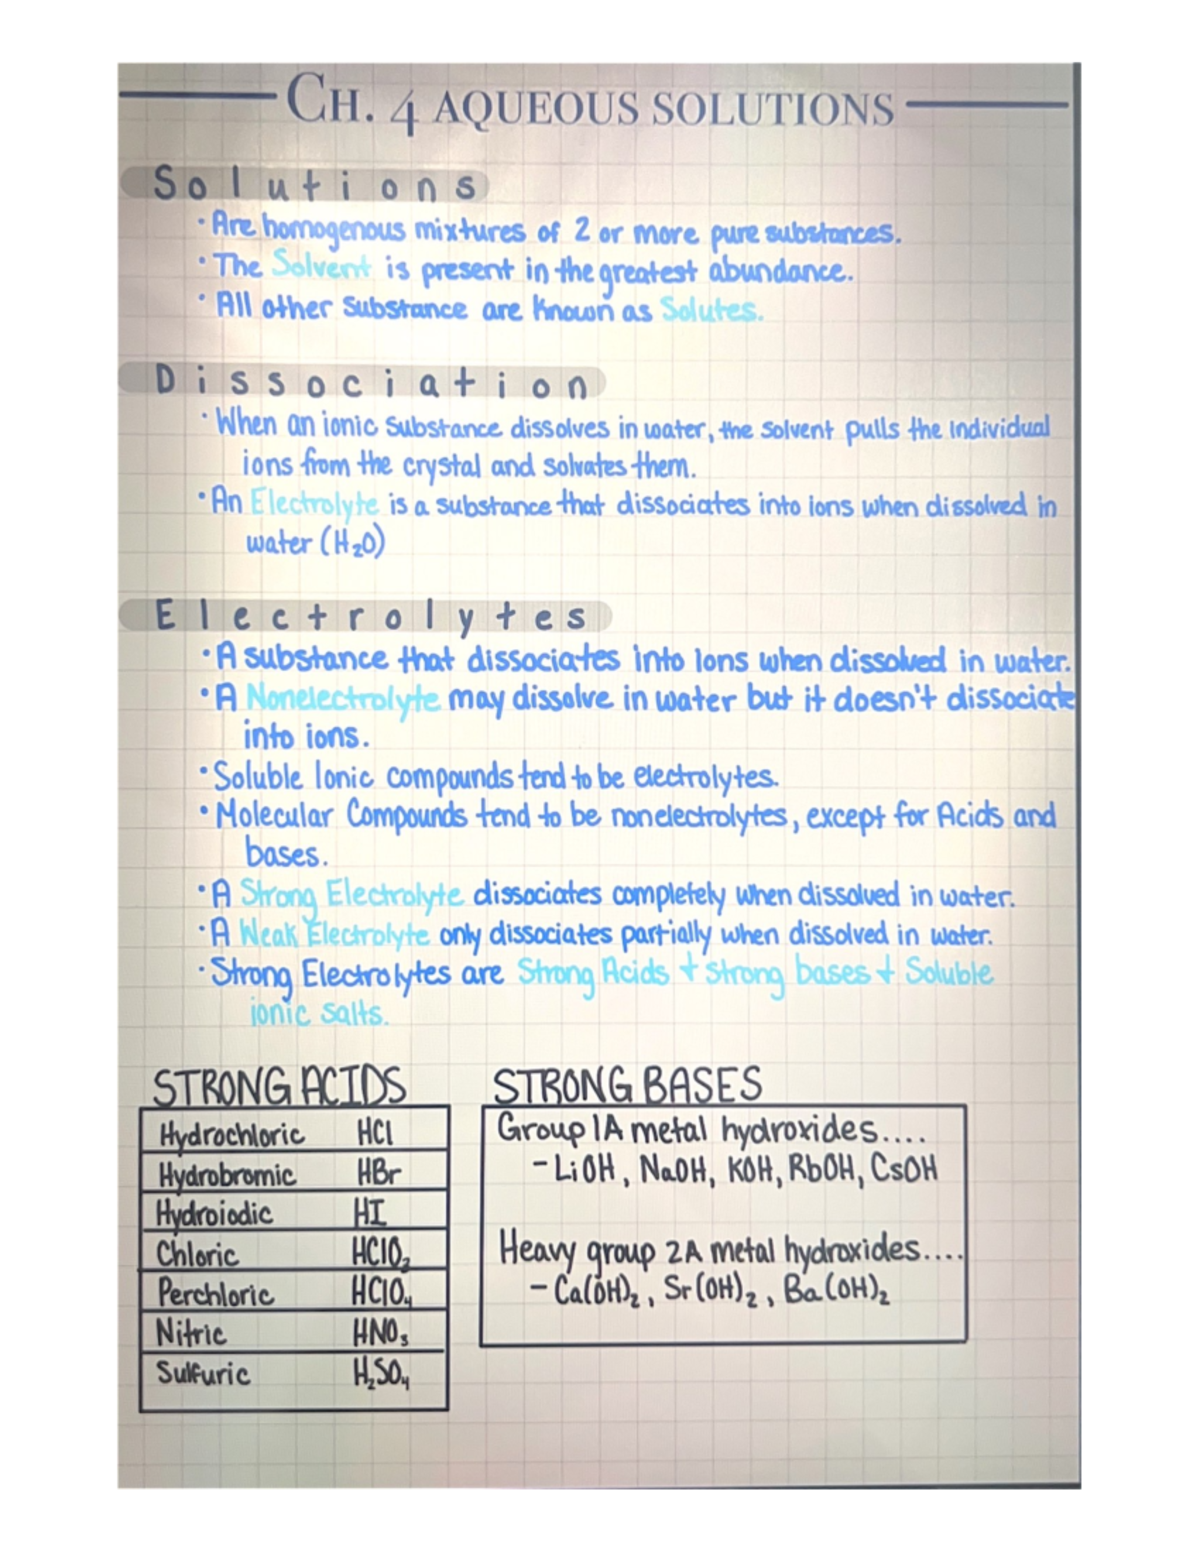 CH. 4 AQUEOUS SOLUTIONS
Solutions
· Are homogenous mixtures of 2 or more pure substances.
· The Solvent is present in the greatest abundance.
· All other Substance are known as Solutes.
Dissociation
· When an ionic substance dissolves in water, the solvent pulls the individual
ions from the crystal and solvates them.
· An Electrolyte is a substance that dissociates into ions when dissolved in
water (H₂O)
Electrolytes
· A substance that dissociates into Ions when dissolved in water.
· A Nonelectrolyte may dissolve in water but it doesn't dissociate
into ions.
· Soluble Ionic compounds tend to be electrolytes.
· Molecular Compounds tend to be nonelectrolytes, except for Acids and
bases.
· A Strong Electrolyte dissociates completely when dissolved in water.
· A Weak Electrolyte only dissociates partially when dissolved in water.
· Strong Electrolytes are Strong Acids + Strong bases + Soluble
ionic salts.
STRONG ACIDS
Hydrochloric HCl
Hydrobromic HBr
Hydroiodic HI
Chloric HClO₂
Perchloric HClO₄
Nitric HNO₃
Sulfuric H₂SO₄
STRONG BASES
Group 1A metal hydroxides....
- LiOH, NaOH, KOH, RbOH, CsOH
Heavy group 2A metal hydroxides....
- Ca(OH)₂, Sr(OH)₂, Ba(OH)₂